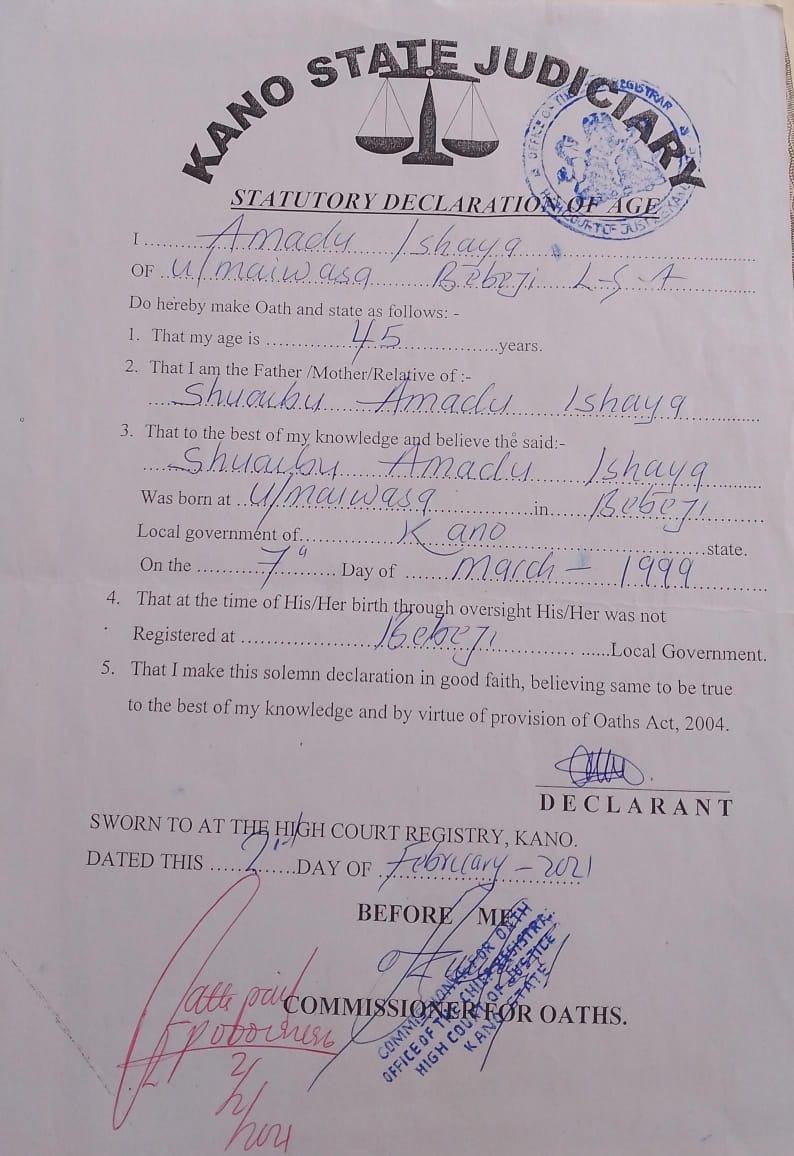 KANO STATE JUDICIARY
OFFICE OF THE REGISTRAR
HIGH COURT OF JUSTICE KANO
STATUTORY DECLARATION OF AGE
I .......... Amadu Ishaya ..........
OF U/maiwasa Bebeji L.G.A
Do hereby make Oath and state as follows: -
1. That my age is .......... 45 .......... years.
2. That I am the Father /Mother/Relative of :-
Shuaibu Amadu Ishaya
3. That to the best of my knowledge and believe the said:-
Shuaibu Amadu Ishaya
Was born at U/maiwasa in Bebeji
Local government of Kano state.
On the 7th Day of march – 1999
4. That at the time of His/Her birth through oversight His/Her was not
Registered at Bebeji Local Government.
5. That I make this solemn declaration in good faith, believing same to be true
to the best of my knowledge and by virtue of provision of Oaths Act, 2004.
DECLARANT
SWORN TO AT THE HIGH COURT REGISTRY, KANO.
DATED THIS 2nd DAY OF February – 2021
BEFORE ME
COMMISSIONER FOR OATHS.
COMMISSIONER FOR OATH
OFFICE OF THE CHIEF REGISTRAR
HIGH COURT OF JUSTICE
KANO STATE
paid
2/2/2021